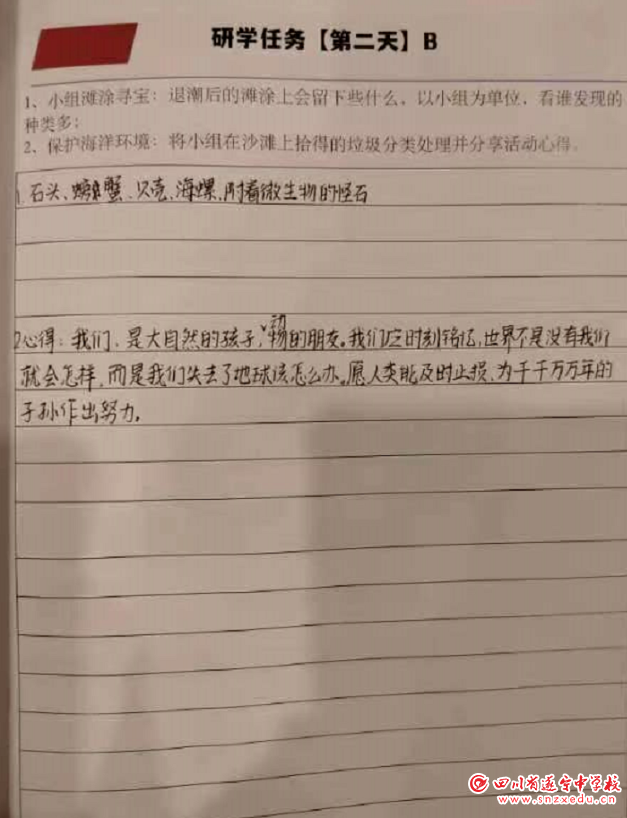 研学任务【第二天】B
1、小组滩涂寻宝：退潮后的滩涂上会留下些什么，以小组为单位，看谁发现的
种类多；
2、保护海洋环境：将小组在沙滩上拾得的垃圾分类处理并分享活动心得。
1. 石头、螃蟹、贝壳、海螺、附着微生物的怪石
2心得：我们、是大自然的孩子，动物的朋友。我们应时刻铭记，世界不是没有我们
就会怎样，而是我们失去了地球该怎么办。愿人类能及时止损、为千千万万年的
子孙作出努力。
四川省遂宁中学校
www.snzxedu.cn